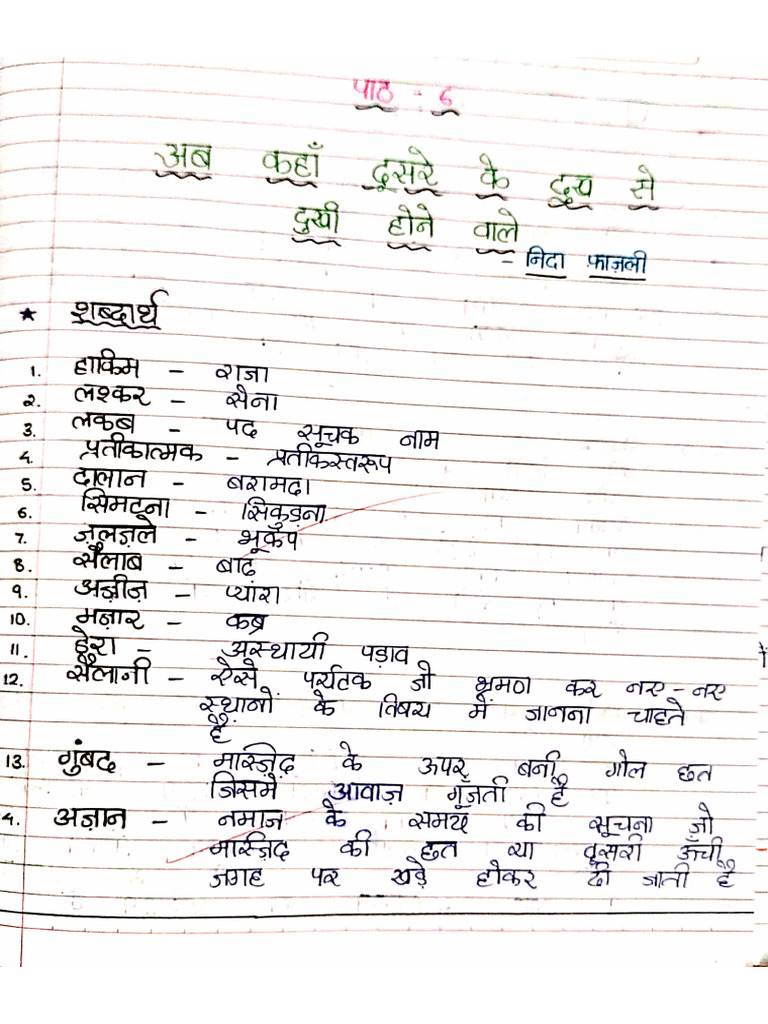 पाठ - 6
अब कहाँ दूसरे के दुख से
दुखी होने वाले
- निदा फ़ाज़ली
★ शब्दार्थ
1. हाकिम - राजा
2. लश्कर - सेना
3. लकब - पद सूचक नाम
4. प्रतीकात्मक - प्रतीकस्वरूप
5. दालान - बरामदा
6. सिमटना - सिकुड़ना
7. ज़लज़ले - भूकंप
8. सैलाब - बाढ़
9. अज़ीज़ - प्यारा
10. मज़ार - कब्र
11. डेरा - अस्थायी पड़ाव
12. सैलानी - ऐसे पर्यटक जो भ्रमण कर नए-नए
स्थानों के विषय में जानना चाहते
हैं
13. गुंबद - मस्ज़िद के ऊपर बनी गोल छत
जिसमें आवाज़ गूँजती है
4. अज़ान - नमाज के समय की सूचना जो
मस्ज़िद की छत या दूसरी ऊँची
जगह पर खड़े होकर दी जाती है